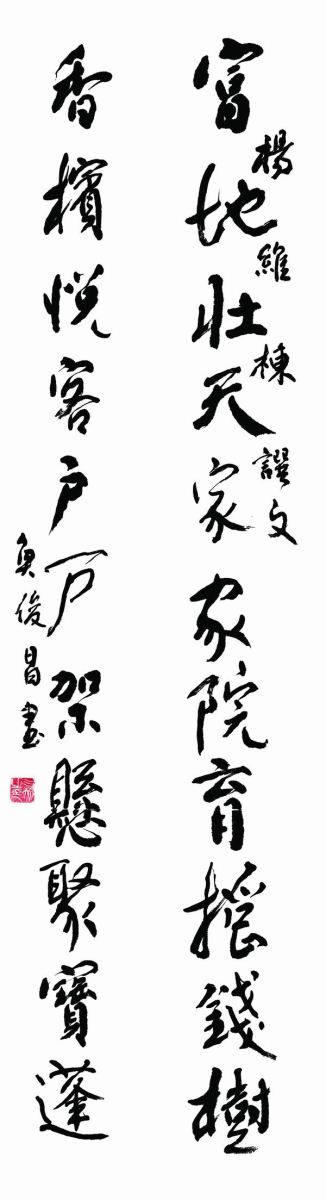 楊維棟譔文
富地壮天家家院育摇錢樹
香檳悦客户户架懸聚寶蓬
吳俊昌書